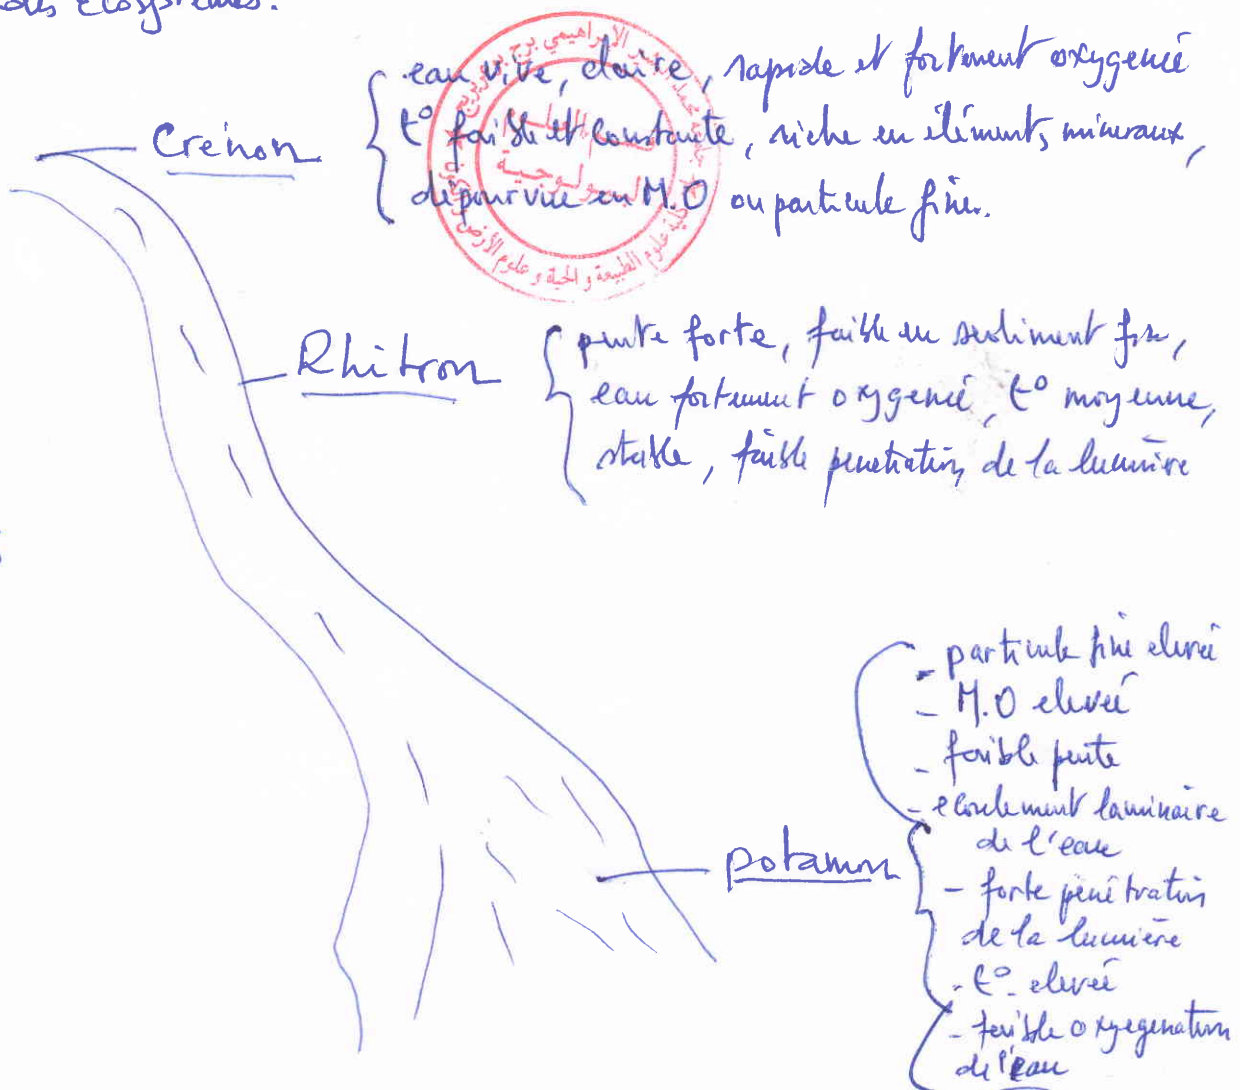 écosystèmes.
Crénon
eau vive, claire, rapide et fortement oxygenié
t° faible et constante, riche en éléments mineraux,
dépourvue en M.O ou particule fine.
Rhitron
pente forte, faible en sediment fin,
eau fortement oxygenié, t° moyenne,
stable, faible penetration de la lumière
potamon
- particule fine elevée
- M.O elevée
- faible pente
- ecoulement laminaire
de l'eau
- forte pénétration
de la lumière
- t° elevée
- faible oxyegenation
de l'eau